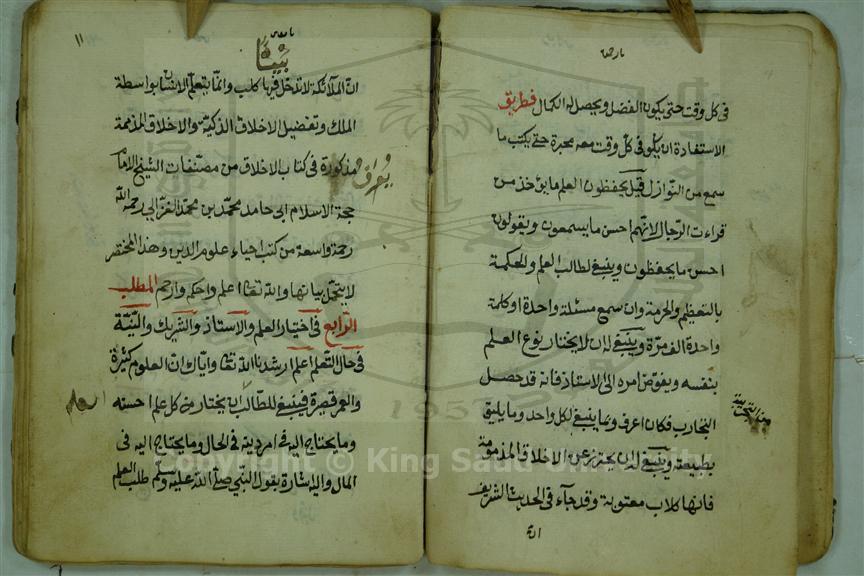 في كل وقت حتى يكون الفضل ويحصل له الكمال فطريق
الاستفادة ان يكون في كل وقت معه محبرة حتى يكتب ما
سمع من النوازل قيل يحفظون العلم ما يؤخذ من
الرجال لانهم احسن ما يسمعون ويقولون
احسن ما يحفظون وينبغي لطالب العلم والحكمة
بالتعظيم والحرمة وان سمع مسئلة واحدة او كلمة
واحدة الف مرة وينبغي له ان لا يختار نوع العلم
بنفسه ويفوض امره الى الاستاذ فانه قد حصل
التجارب فكان اعرف وبما ينبغي لكل واحد وما يليق
بطبيعته وينبغي له ان يحترز عن الاخلاق المذمومة
فانها كلاب معنوية وقد جاء في الحديث الشريف
ان
١١
بيتا
ان الملائكة لا تدخل فيها كلب وانما يتعلم الانسان بواسطة
الملك وتفضيل الاخلاق الذكية والاخلاق الذميمة
مذكورة في كتاب الاخلاق من مصنفات الشيخ الامام
حجة الاسلام ابى حامد محمد بن محمد الغزالي رحمه الله
رحمة واسعة من كتب احياء علوم الدين وهذا المختصر
لا يتحمل بيانها والله تعا اعلم واحكم وارحم المطلب
الرابع في اختيار العلم والاستاذ والشريك والنية
في حال التعلم اعلم ارشدنا الله تعا واياك ان العلوم كثيرة
والعمر قصيرة فينبغي للطالب ان يختار من كل علم احسنه
وما يحتاج اليه في امر دينه في الحال وما يحتاج اليه في
المال والاشارة بقول النبي صلى الله عليه وسلم طلب العلم
1957
Copyright © King Saud University